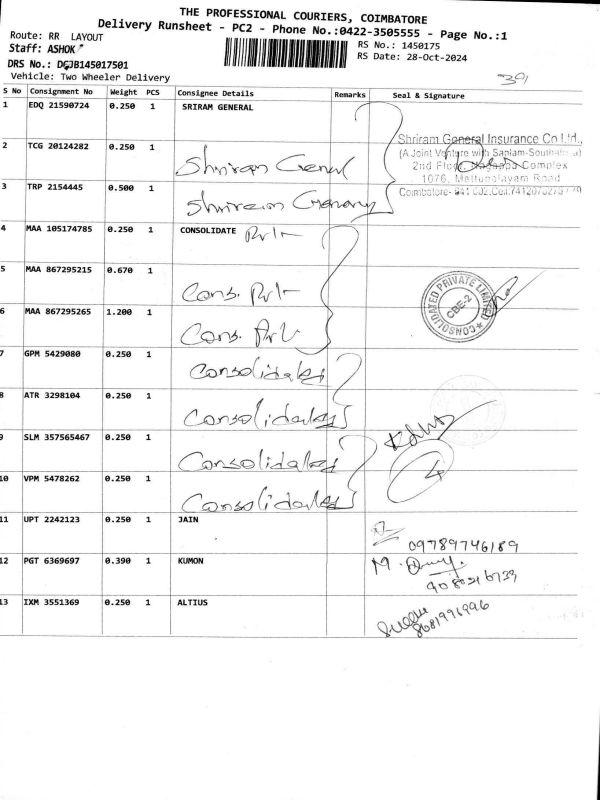 THE PROFESSIONAL COURIERS, COIMBATORE
Delivery Runsheet - PC2 - Phone No.:0422-3505555 - Page No.:1
Route: RR LAYOUT
RS No.: 1450175
Staff: ASHOK
RS Date: 28-Oct-2024
DRS No.: DGJB145017501
Vehicle: Two Wheeler Delivery
S No Consignment No Weight PCS Consignee Details Remarks Seal & Signature
1 EDQ 21590724 0.250 1 SRIRAM GENERAL
Shriram General Insurance Co Ltd.,
(A Joint Venture with Sanlam-South
2 TCG 20124282 0.250 1 Shriram General
2nd Floor Complex
1076, Mettupalayam Road
3 TRP 2154445 0.500 1 Shriram General
4 MAA 105174785 0.250 1 CONSOLIDATE Pvt
5 MAA 867295215 0.670 1 Cons. Pvt
CONSOLIDATED PRIVATE LIMITED
CBE-2
6 MAA 867295265 1.200 1 Cons. Pvt
7 GPM 5429080 0.250 1 Consolidates
8 ATR 3298104 0.250 1 Consolidates
9 SLM 357565467 0.250 1 Consolidates
10 VPM 5478262 0.250 1 Consolidates
11 UPT 2242123 0.250 1 JAIN
09789746189
12 PGT 6369697 0.390 1 KUMON M.
13 IXM 3551369 0.250 1 ALTIUS
8681996996